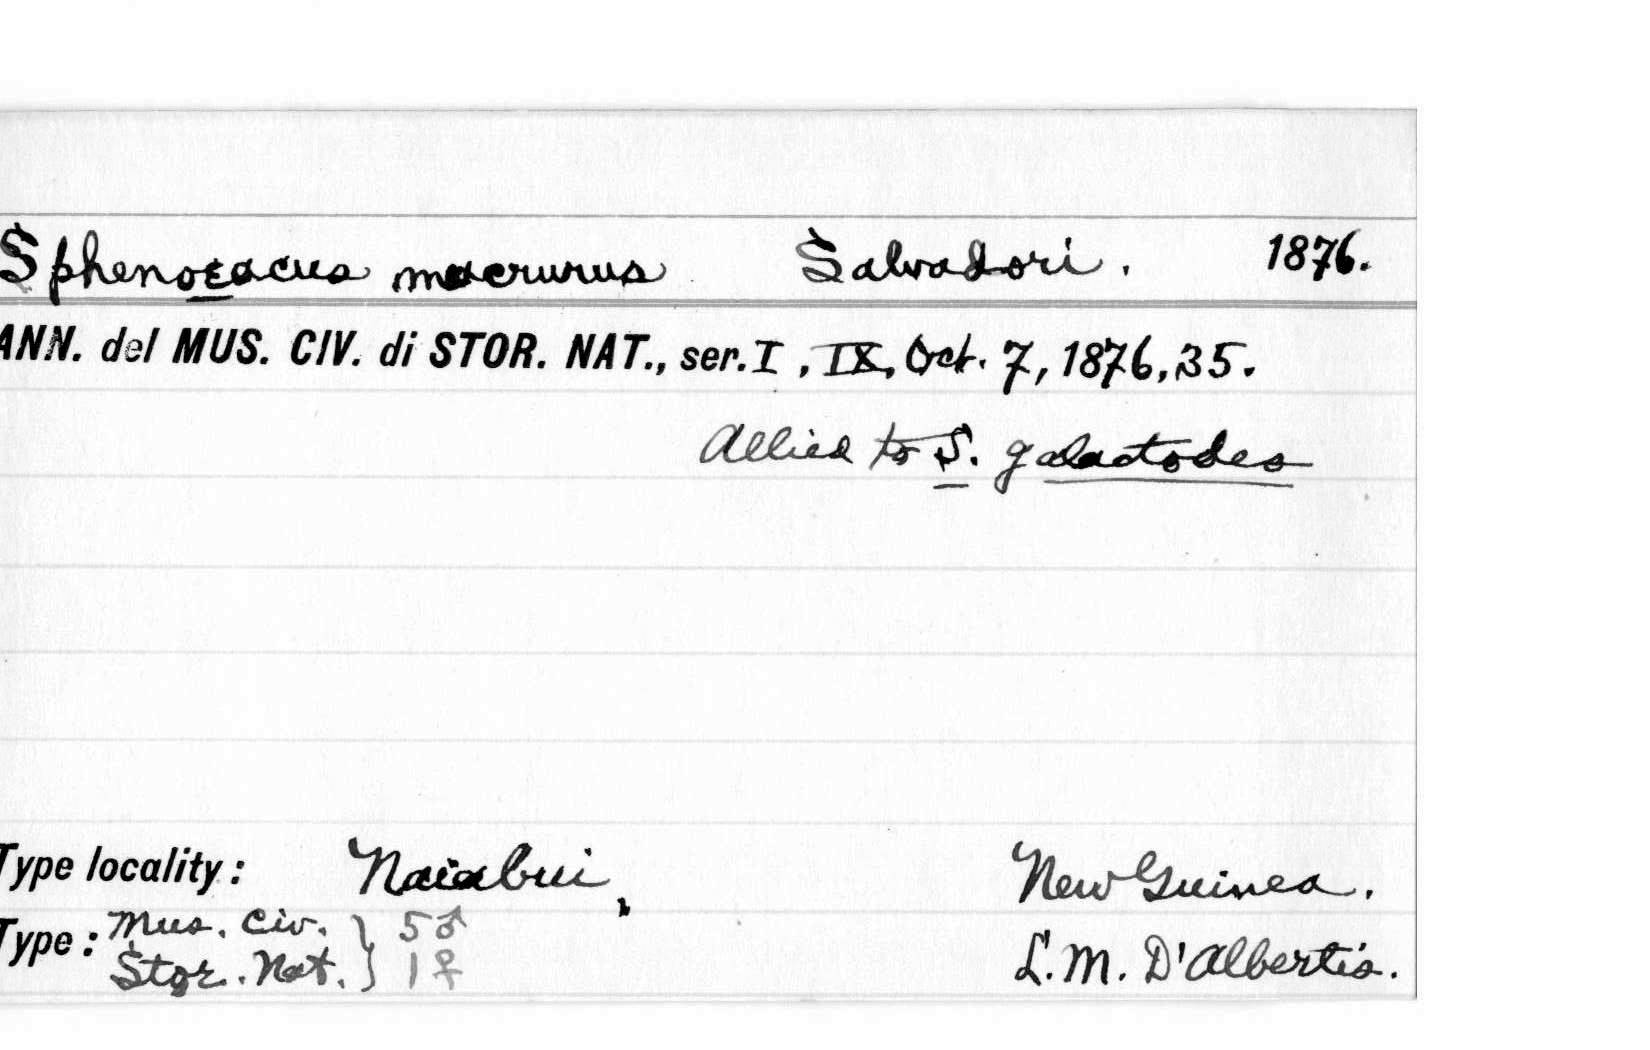 Sphenoeacus macrurus Salvadori. 1876.
ANN. del MUS. CIV. di STOR. NAT., ser. I, IX, Oct. 7, 1876, 35.
Allied to S. galactodes
Type locality: Naiabui, New Guinea.
Type: Mus. Civ. Stor. Nat. } 5♂ 1♀ L. M. D'Albertis.